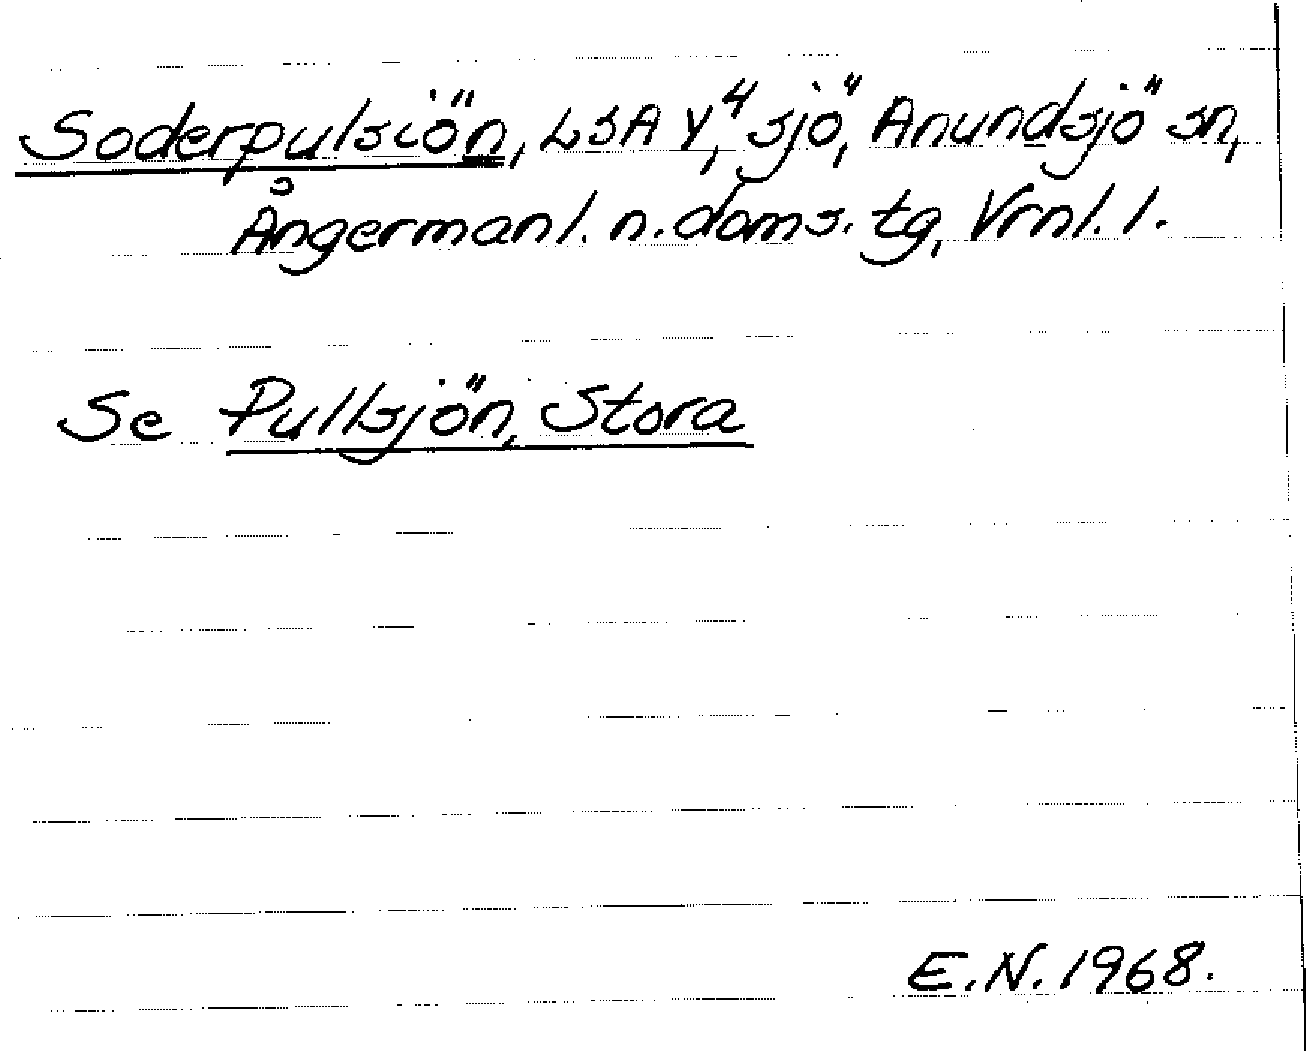 Soderpulsiön, LSA Y⁴, sjö, Anundsjö sn,
Ångermanl. n. doms. tg, Vrnl. l.
Se Pullsjön, Stora
E.N. 1968.